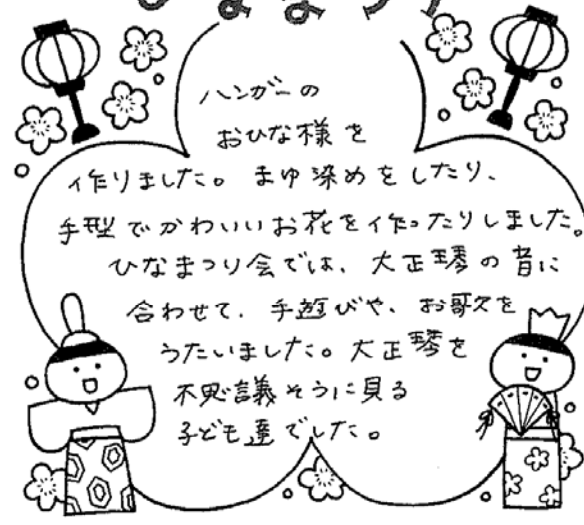 ひなまつり
ハンガーの
おひな様を
作りました。まゆ染めをしたり、
手型でかわいいお花を作ったりしました。
ひなまつり会では、大正琴の音に
合わせて、手遊びや、お歌を
うたいました。大正琴を
不思議そうに見る
子ども達でした。